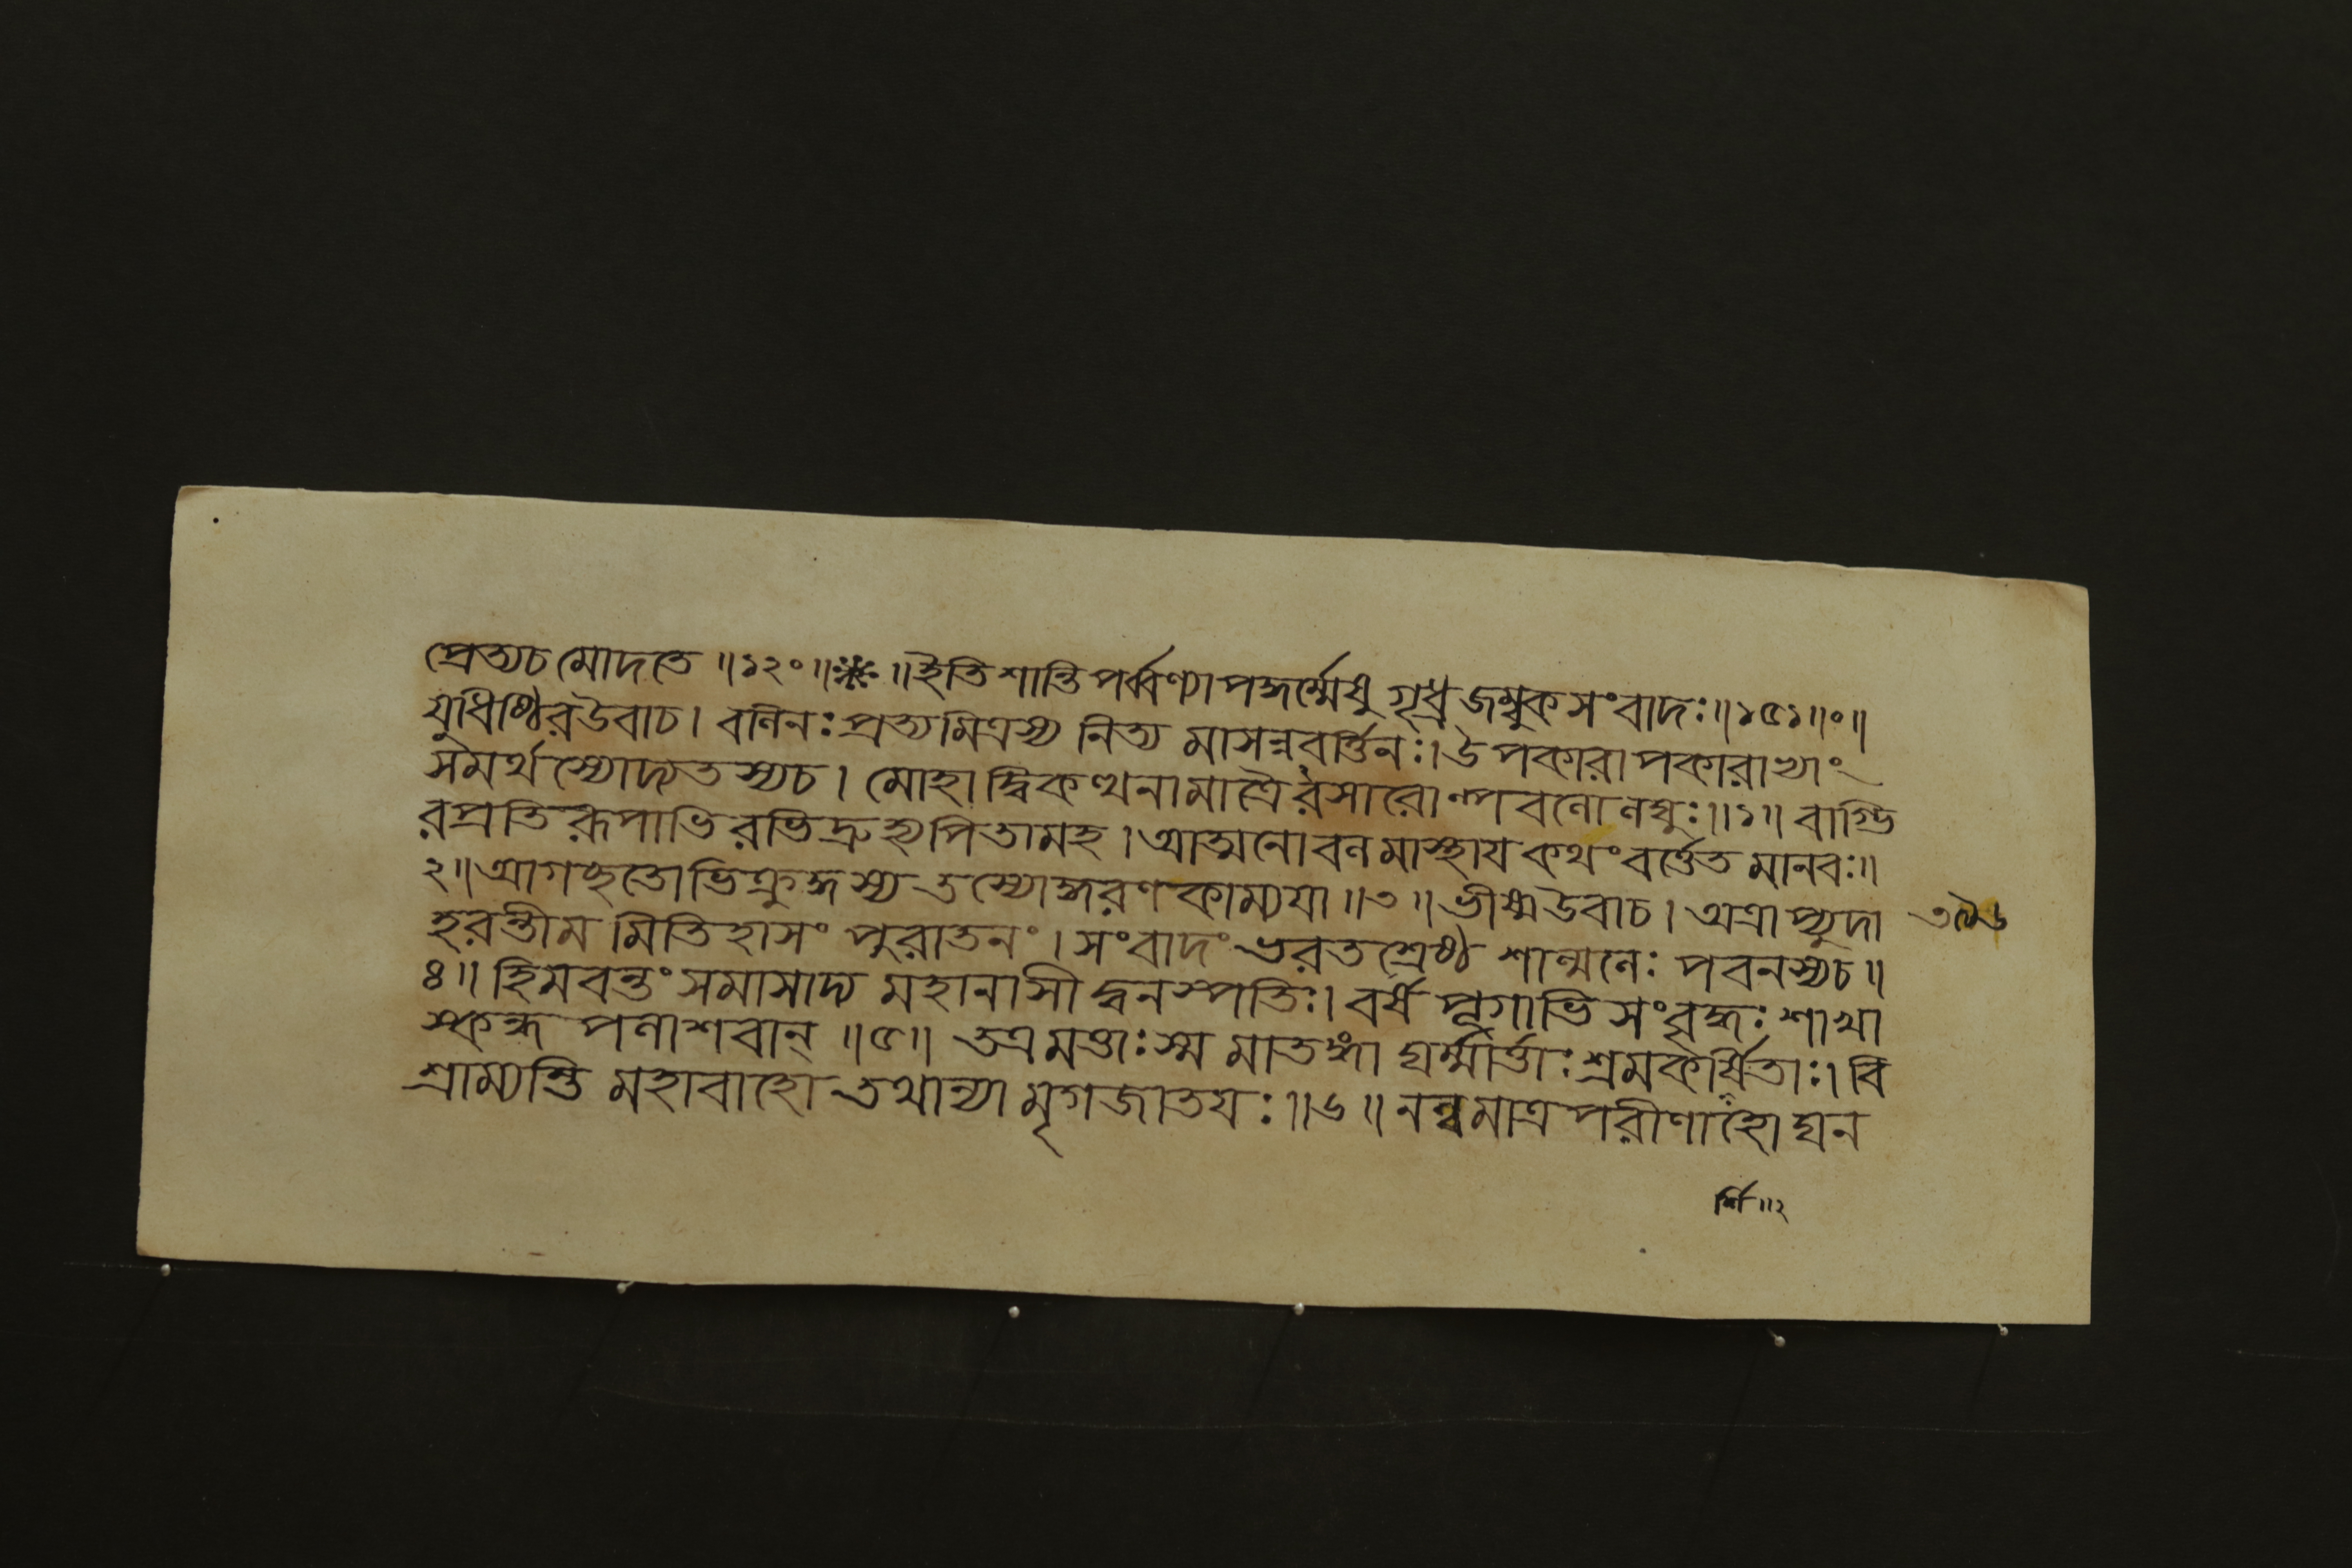 প্রেত্যচ মোদতে ॥১২০॥※॥ইতি শান্তিপর্ব্বণ্যাপদ্ধর্ম্মেষু গৃধ্রজম্বুকসংবাদঃ॥১৫১॥০॥
যুধিষ্ঠিরউবাচ। বলিনঃ প্রত্যমিত্রস্য নিত্য মাসন্নবর্ত্তিনঃ। উপকারাপকারাভ্যাং
সমর্থস্যোদ্যতস্যচ। মোহাদ্বিকত্থনামাত্রৈরসারোল্পবলোলঘুঃ॥১॥ বাগ্ভি
রপ্রতিরূপাভিরভিদ্রুহ্যপিতামহ। আত্মনোবলমাস্থায কথং বর্ত্তেত মানবঃ॥
২॥ আগচ্ছতোভিক্রুদ্ধস্য তস্যোদ্ধরণকাম্যযা॥৩॥ ভীষ্মউবাচ। অত্রাপ্যুদা
হরন্তীম মিতিহাসং পুরাতনং। সংবাদং ভরতশ্রেষ্ঠ শাল্মলেঃ পবনস্যচ॥
৪॥ হিমবন্তং সমাসাদ্য মহানাসীদ্বনস্পতিঃ। বর্ষপূগাভিসংবৃদ্ধঃ শাখা
স্কন্ধপলাশবান্ ॥৫॥ তত্রমত্তাঃ স্ম মাতঙ্গা ঘর্ম্মার্ত্তাঃ শ্রমকর্ষিতাঃ। বি
শ্রাম্যন্তি মহাবাহো তথান্যা মৃগজাতযঃ॥৬॥ নল্বমাত্রপরীণাহো ঘন
র্শি॥২